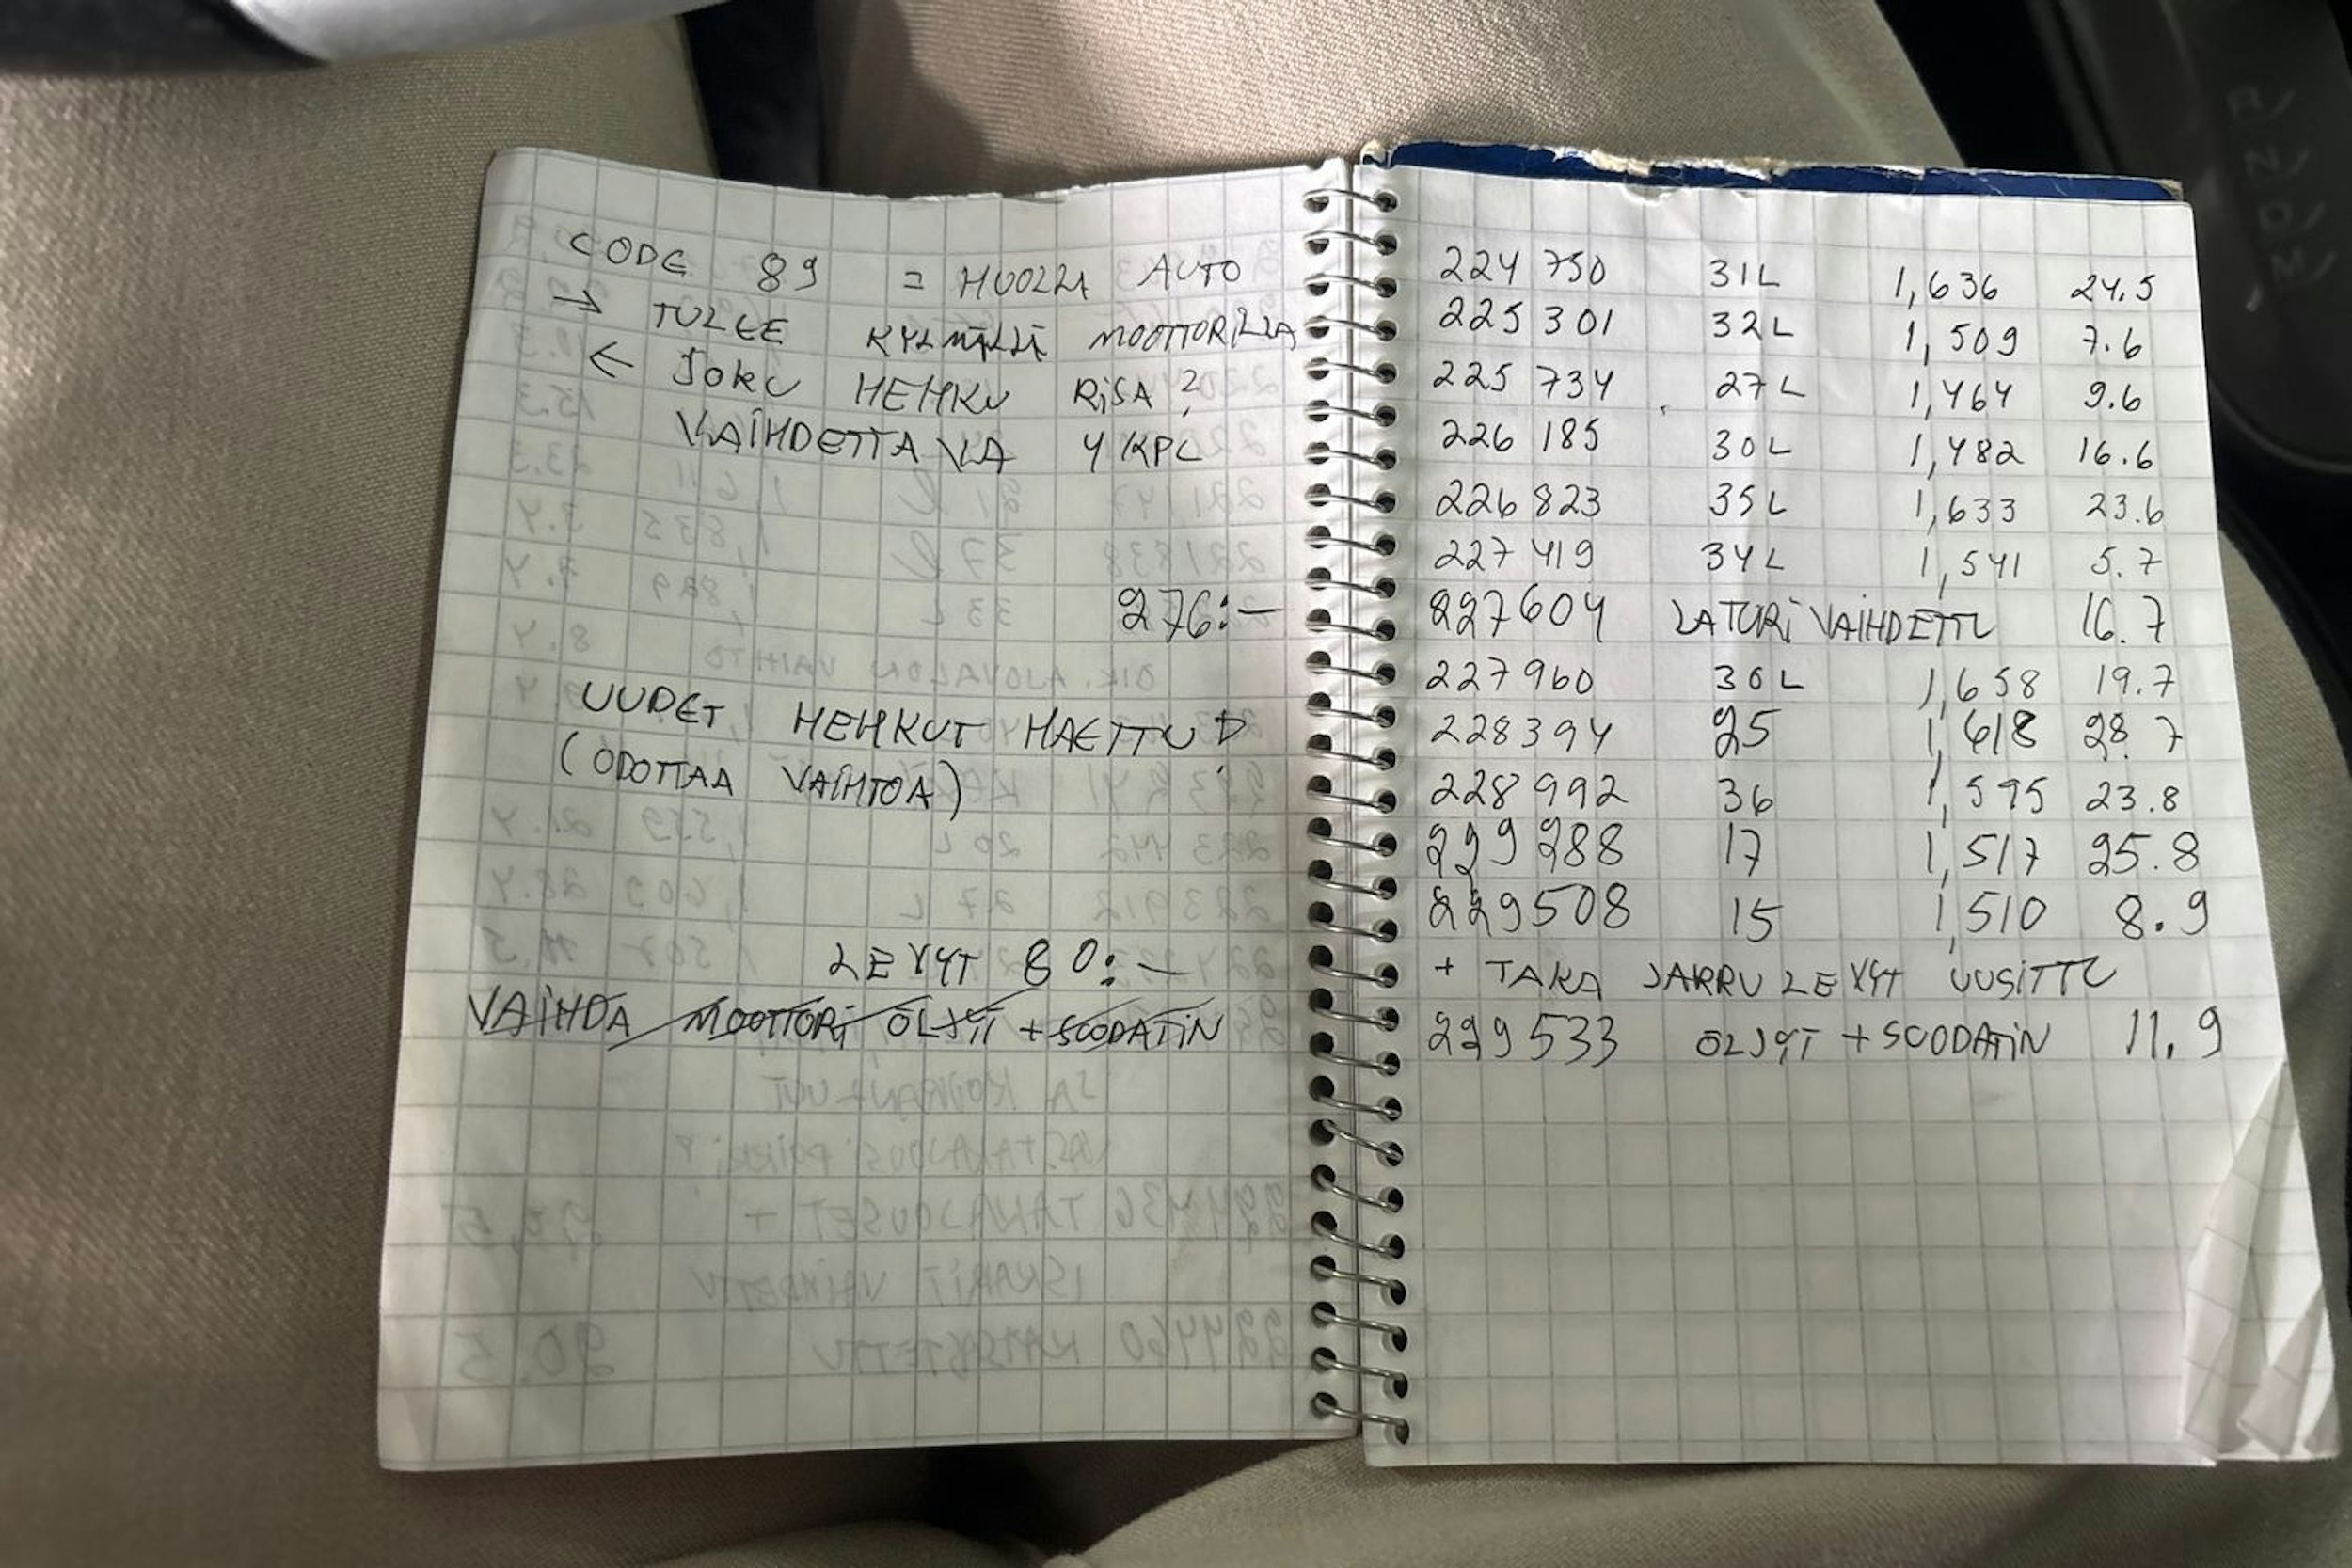 CODE 89 = HUOLLA AUTO
→ TULEE KYLMÄLLÄ MOOTTORILLA
← JOKU HEHKU RISA?
VAIHDETTAVA 4 KPL
276:—
UUDET HEHKUT HAETTU
(ODOTTAA VAIHTOA)
LEVYT 80:—
VAIHDA MOOTTORI ÖLJYT + SUODATIN
224 750 31L 1,636 24.5
225 301 32L 1,509 7.6
225 734 27L 1,464 9.6
226 185 30L 1,482 16.6
226 823 35L 1,633 23.6
227 419 34L 1,541 5.7
227604 LATURI VAIHDETTU 16.7
227960 30L 1,658 19.7
228394 25 1,618 28.7
228992 36 1,595 23.8
229288 17 1,517 25.8
229508 15 1,510 8.9
+ TAKA JARRULEVYT UUSITTU
229533 ÖLJYT + SUODATIN 11.9